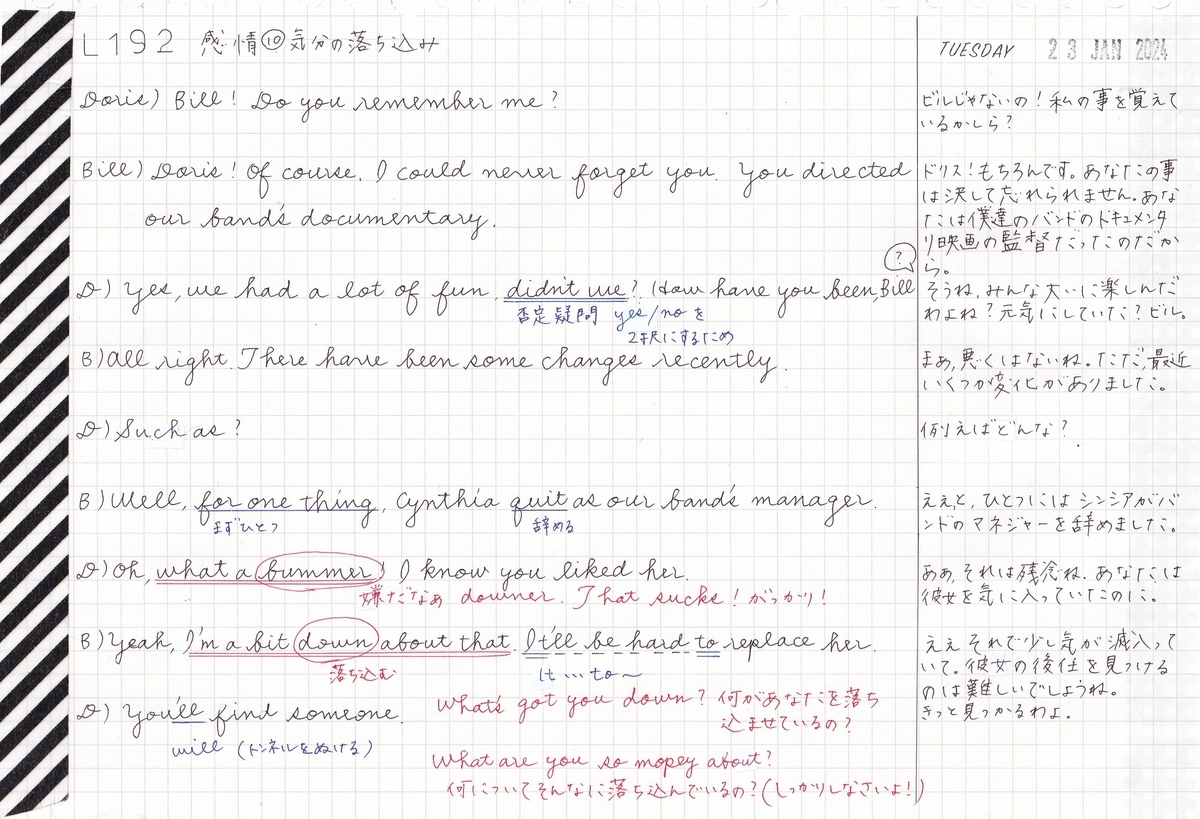 L192 感情⑩気分の落ち込み
TUESDAY 23 JAN 2024
Doris) Bill! Do you remember me?
ビルじゃないの!私の事を覚えて
いるかしら?
Bill) Doris! Of course. I could never forget you. You directed
our band's documentary.
ドリス!もちろんです。あなたの事
は決して忘れられません。あな
たは僕達のバンドのドキュメンタ
リ映画の監督だったのだか
ら。
D) Yes, we had a lot of fun, didn't we? How have you been, Bill
?
否定疑問 yes/noを
2択にするため
そうね、みんな大いに楽しんだ
わよね?元気にしていた?ビル。
B) All right. There have been some changes recently.
まあ、悪くはないね。ただ、最近
いくつか変化がありました。
D) Such as?
例えばどんな?
B) Well, for one thing, Cynthia quit as our band's manager.
まずひとつ
辞める
ええと、ひとつにはシンシアがバ
ンドのマネジャーを辞めました。
D) Oh, what a bummer! I know you liked her.
嫌だなぁ downer. That sucks! がっかり!
ああ、それは残念ね。あなたは
彼女を気に入っていたのに。
B) Yeah, I'm a bit down about that. It'll be hard to replace her.
落ち込む
It…to~
ええ それで少し気が滅入って
いて。彼女の後任を見つける
のは難しいでしょうね。
D) You'll find someone.
will (トンネルをぬける)
きっと見つかるわよ。
What's got you down? 何があなたを落ち
込ませているの?
What are you so mopey about?
何についてそんなに落ち込んでいるの?(しっかりしなさいよ!)